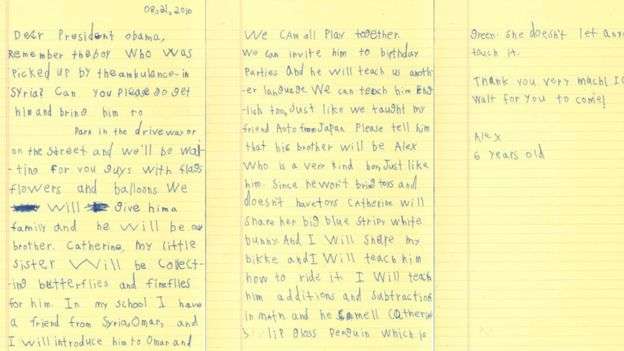 08.21, 2016
Dear President obama,
Remember the boy who was
picked up by the ambulance in
Syria? Can you please go get
him and bring him to
Park in the driveway or
on the street and we'll be wai
-ting for you guys with flags
flowers and balloons We
will give him a
family and he will be our
brother. Catherine, my little
sister will be collect-
ing butterflies and fireflies
for him. In my school I have
a friend from Syria, Omar, and
I will introduce him to Omar and
We can all play together.
We can invite him to birthday
parties and he will teach us anoth-
er language We can teach him Eng
lish too, Just like we taught my
friend Aoto from Japan Please tell him
that his brother will be Alex
who is a very kind boy, Just like
him. Since he won't bring toys and
doesn't have toys Catherine will
share her big blue stripy white
bunny And I will share my
bikke and I will teach him
how to ride it. I will teach
him additions and subtractions
in math and he smell Catherine
lip gloss penguin which is
green. She doesn't let any
touch it.
Thank you very mach! I c
wait for you to come!
Alex
6 years old